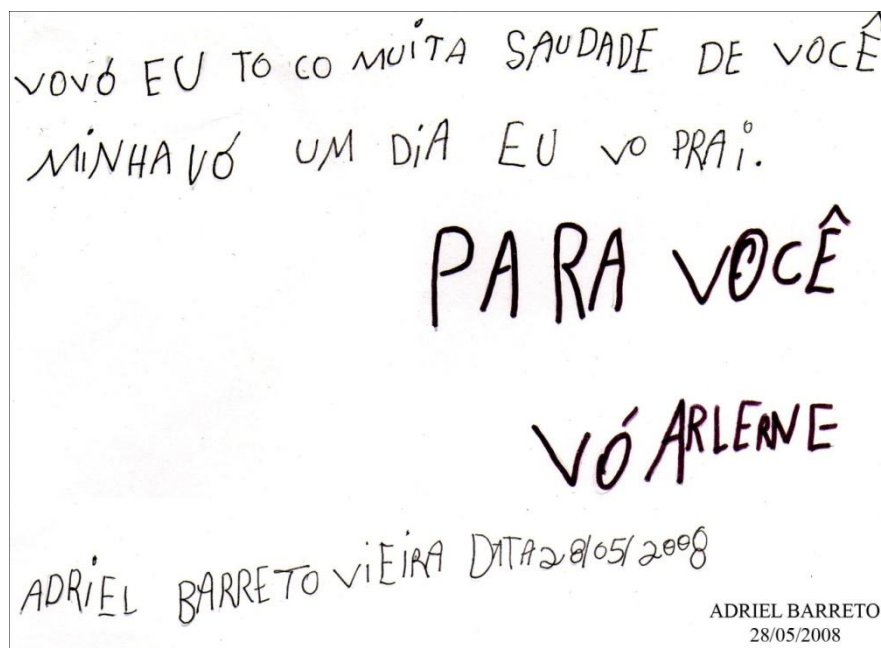 VOVÓ EU TO CO MUITA SAUDADE DE VOCÊ
MINHA VÓ UM DIA EU VO PRAI.
PARA VOCÊ
VÓ ARLERNE
ADRIEL BARRETO VIEIRA DATA 28/05/2008
ADRIEL BARRETO
28/05/2008